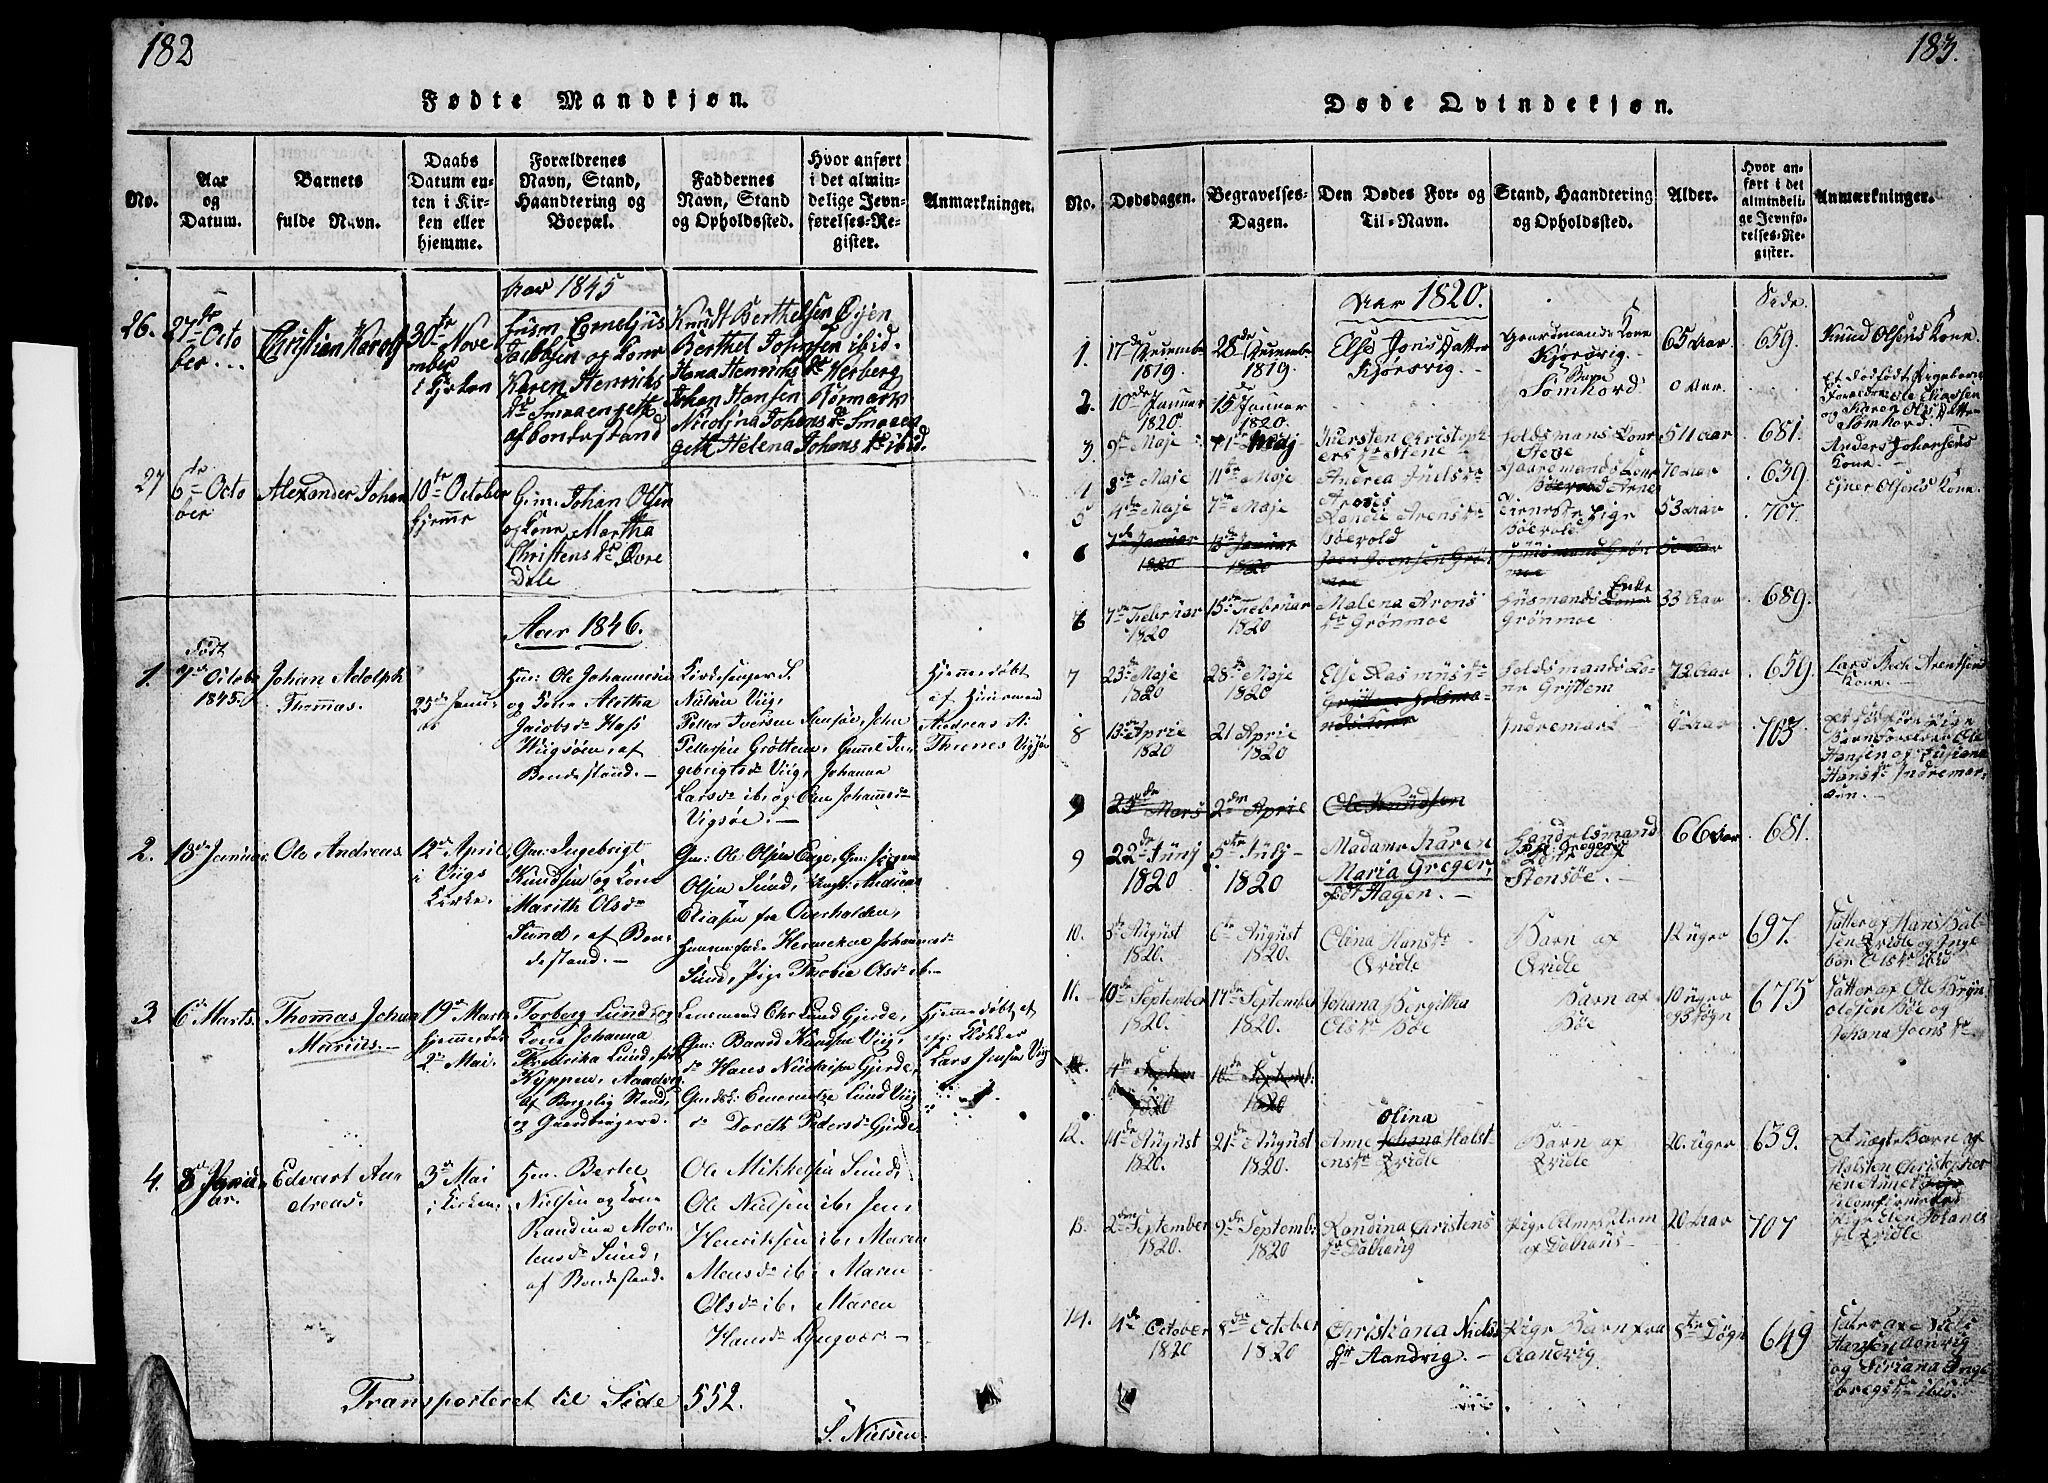 182
Fødte Mandkjøn.
No.
Aar og Datum.
Barnets fulde Navn.
Daabs Datum enten i Kirken eller hjemme.
Forældrenes Navn, Stand, Haandtering og Boepæl.
Faddernes Navn, Stand og Opholdssted.
Hvor anført i det almindelige Jevnførelses-Register.
Anmærkninger.
Aar 1845
26.
27de October
Christian Karolus
30te November
i Kirken
Jacobsen og Kone
Karen Henriks
dr Smaageth
af bondestand
Knudt Berthelsen Øyen
Berthel Johnsen ibid.
Hana Henriks dr Herberg
Johan Hansen Rørmark
Nicolina Johans dr Smaageth
Helena Johans dr ibid.
27
6te October
Alexander Johan
10de October
hjemme
Gm: Johan Olsen
og Kone Martha
Christens dr Øvre
Dale
Aar 1846.
1.
Født
October
1845.
Johan Adolph
Thomas.
25de Januar
Hm: Ole Johannesen
og Kone Alitha
Jacobsdr Hass
Viigsøen, af
Bondestand.
Kirkesanger S.
Nielsen Viig,
Petter Iversen Stensøe, John
Pettersen Grøtten,
gebrigtsdr Viig, Johanna
Larsdr ib. og Ane Johannsdr
Vigsøe.
Hjemmedøbt
af
Andreas A.
Threnes Vigsøe
2.
18de Januar
Ole Andreas.
12te April
i Viigs
Kirke.
Gm: Ingebrigt
Knudsen og Kone
Marith Olsdr
Sund, af Bondestand.
Gm: Ole Olsen Enge, Gm: Jørgen
Olsen Sund, Andreas
Eliasen fra Overholden,
Johannesdr
Sund, Pige Thobia Olsdr ib.
3.
6te Marts.
Thomas Johan
Marius.
19de Marts
hjemmedøbt
2den Mai.
Torberg Lund og
Kone Johanna
Fredrikka Lund, født
Kyppen, Aandvig
af Borgelig Stand,
og Gaardbrugere.
Lensmand Chr Lund Gjerde,
Gm: Baard Knudsen Viig,
do Hans Nicolaisen Gjerde,
Lund Viig
do Doreth Pedersdr Gjerde.
Hjemmedøbt af
Klokker
Lars Jensen Viig
4.
8de Januar.
Edvart Andreas.
3de Mai
i Kirken.
Hm. Berte
Nielsen og Kone
Randina Mortensdr
Sund,
af Bondestand.
Ole Mikkelsen Sund,
Ole Nielsen ib, Jens
Henriksen ib, Maren
Monsdr ib, Maren
Olsdr ib, Maren
Hansdr Lyngvær
Transporteret til Side 552.
S. Nielsen
183.
Døde Qvindekjøn.
No.
Dødsdagen.
Begravelses-Dagen.
Den Dødes For- og Til-Navn.
Stand, Haandtering og Opholdssted.
Alder.
Hvor anført i det almindelige Jevnførelses-Register.
Anmærkninger.
Aar 1820.
Side.
1.
17de Decembr
1819
28de Decembr
1819
Else Jons Datter
Kjørsvig
Gaardmands Kone
Kjørsvig
65 Aar
659.
Knud Olsens Kone.
2.
10de Januar
1820.
15de Januar
1820.
Barn
Somhord
0 Aar
Et dødfødt Pigebarn
Forældre Ole Eliassen
og Karen Ols Datter
Somhord
3.
9de Maje
Maj
Kiersten Christophers dr
Stene
Stene
54 Aar
681.
Anders Johansens
Kone.
4
3de Maje
11te Maje
Andrea Juels dr
Arnes
Gaardmands Kone
Arnes
70 Aar
639.
Ejner Olsens Kone.
5
4de Maje
7de Maje
Randi Arens dr
Bøevold
Tieneste Pige
Bøevold
53 Aar
707.
6
7de Januar
1820
13de Januar
1820
Joen Joensen Grønmoe
Huusmand Grønmoe
50 Aar
6
7de Februar
1820
15de Februar
1820
Malena Arons
dr Grønmoe
Huusmands Enke
Grønmoe
33 Aar
689.
7
23de Maje
1820
28de Maje
1820
Else Rasmus dr
Grytten
Kone
Grytten
72 Aar
659.
Lars Bech Arentsens
Kone.
8
13de Aprie
1820
21 Aprie
1820
Indremark
0 Aar
703.
Et dødfødt Pige
Barn Forældre Ole
Hansen og
Hans dr Indremarkeun.
9
25de Mars
2den Aprie
Ole Knudsen
9
22de Junj
1820
5te Julj
1820
Madame Karen
Maria Greger,
født Hagen.
Handelsmand
Gregers
Kone af
Stensøe.
66 Aar
681.
10.
August
1820.
6te August
1820.
Olina Hans dr
Qvidle
Barn af
Qvidle
12 uger
697.
Datter af Hans
Qvidle og Ingebor
Ols dr ibid
11.
10de September
1820.
17de September
1820.
Johana Bergitha
Ols dr Bøe
Barn af
Bøe
10 uger
og 3 døgn
675
Datter af Ole Brynoldsen
Bøe og
Johana Joens dr
12.
4de Septem
1820
10de Septemb.
1820
12.
14de August
1820.
21de August
1820.
Anne Olina Halstens dr
Qvidle
Barn af
Qvidle
20. uger
639.
Uægte Barn af
Halsten Christophersen
Qvidle
13.
2den September
1820.
9de Septembr
1820.
Randina Christens
dr Dalhaug
Pige
af Dalhaug
20 Aar
707
14.
4de October
1820
8de October
1820
Christiana Niels
dr Aandvig.
Pige Barn fra
Aandvig.
8te Døgn
649
Datter af Niels
Hansen Aanvig
og Siriana Ingebregs
dr ibid.